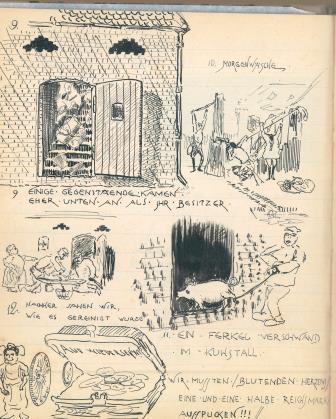 9.
10. MORGENWÄSCHE
9 EINIGE GEGENSTAENDE KAMEN
EHER UNTEN AN ALS IHR BESITZER.
12. NACHHER SAHEN WIR,
WIE ES GEREINIGT WURDE
11. EIN FERKEL VERSCHWAND
IM KUHSTALL.
WIR MUSSTEN/BLUTENDEN HERZENS/
EINE UND EINE HALBE REICHSMARK
AUSSPUCKEN!!!